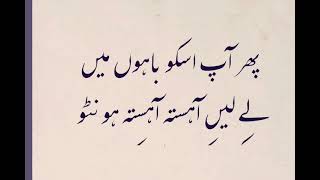 پھر آپ اسکو باہوں میں
لے لیں آہستہ آہستہ ہونٹو